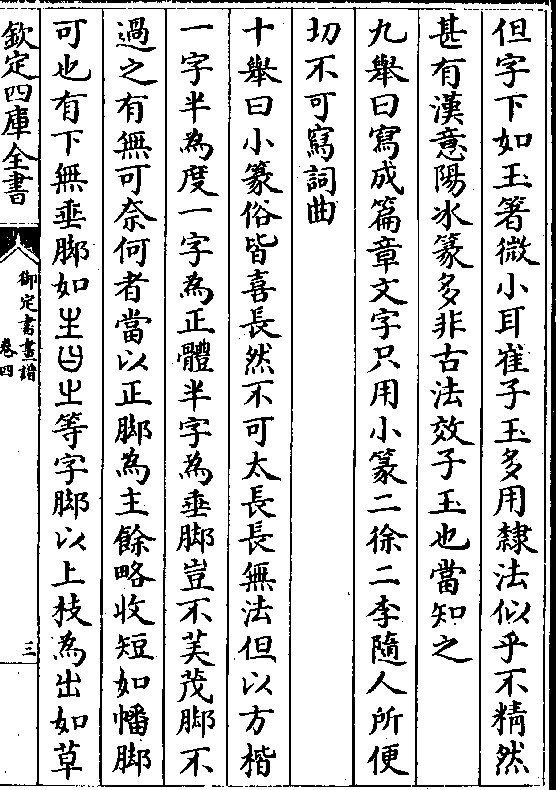 但字下如玉箸微小耳崔子玉多用隸法似乎不精然
甚有漢意陽冰篆多非古法效子玉也當知之
九舉曰寫成篇章文字只用小篆二徐二李隨人所便
切不可寫詞曲
十舉曰小篆俗皆喜長然不可太長長無法但以方楷
一字半為度一字為正體半字為垂脚豈不美茂脚不
過之有無可奈何者當以正脚為主餘略收短如幡脚
可也有下無垂脚如等字脚以上枝為出如草
欽定四庫全書
御定書畫譜
卷四
三